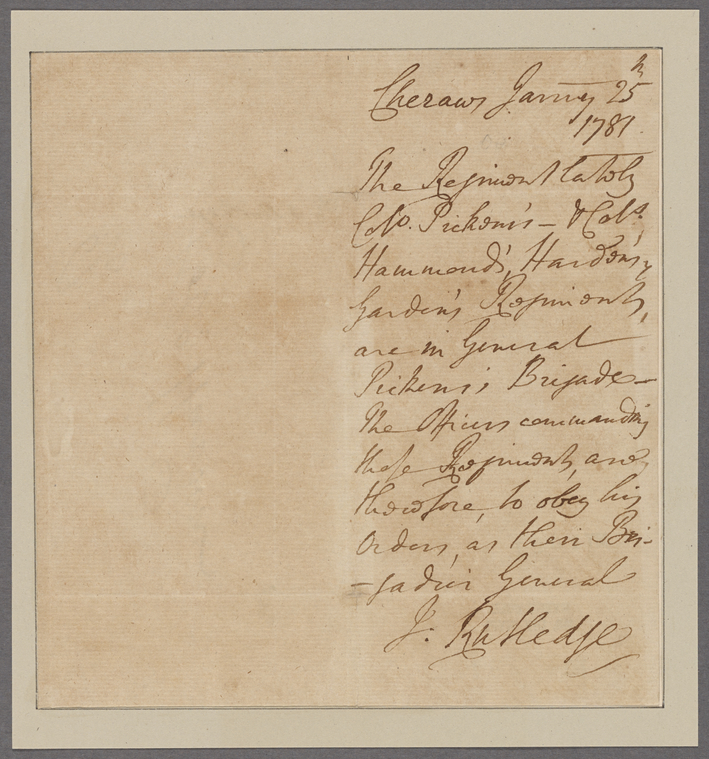 Cheraws Janry 25th
1781.
The Regiment lately
Colo. Pickens's – & Colo.
Hammond's, Harden's,
Garden's Regiments,
are in General
Pickens's Brigade –
The Officers commanding
these Regiments, are,
therefore, to obey his
Orders, as their Bri-
-gadier General
J. Rutledge